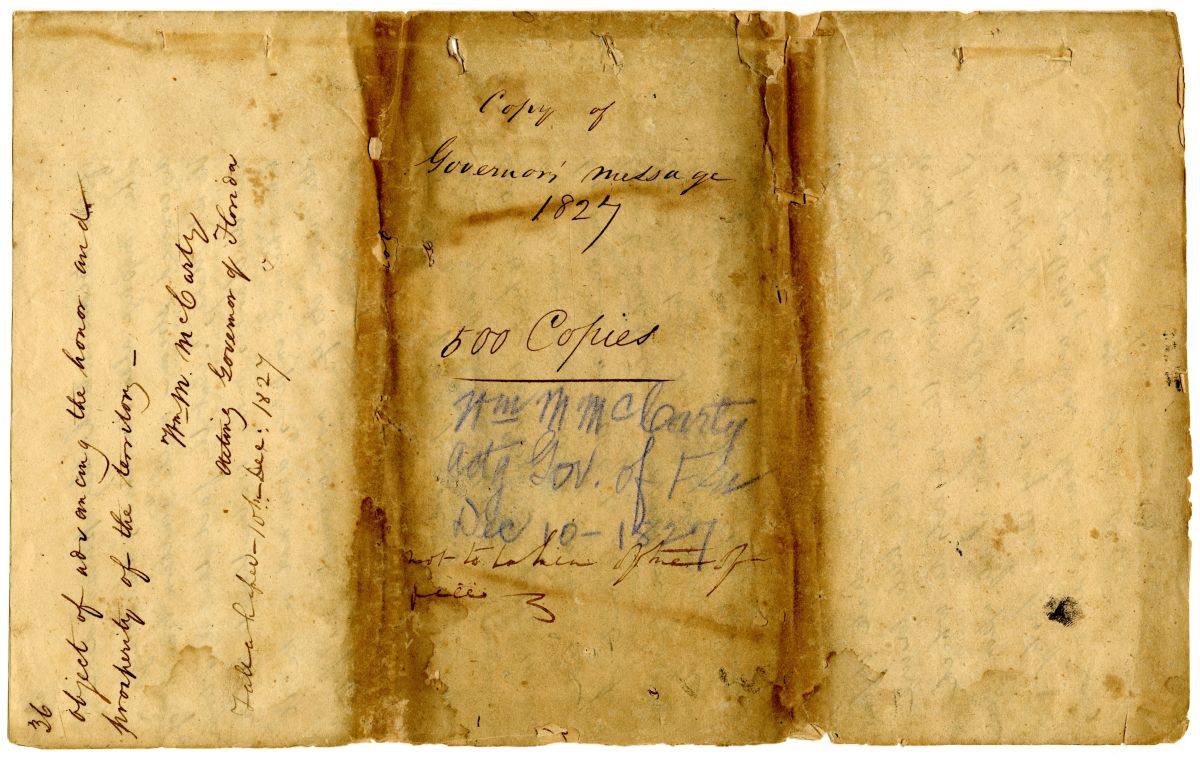 36
object of advancing the honor and
prosperity of the territory –
Wm. M. McCarty
Acting Governor of Florida
Tallahassee – 10th Dec: 1827
Copy of
Governor's message
1827
500 Copies
Wm M McCarty
Actg Gov. of Fla
Dec 10 – 1827
not to